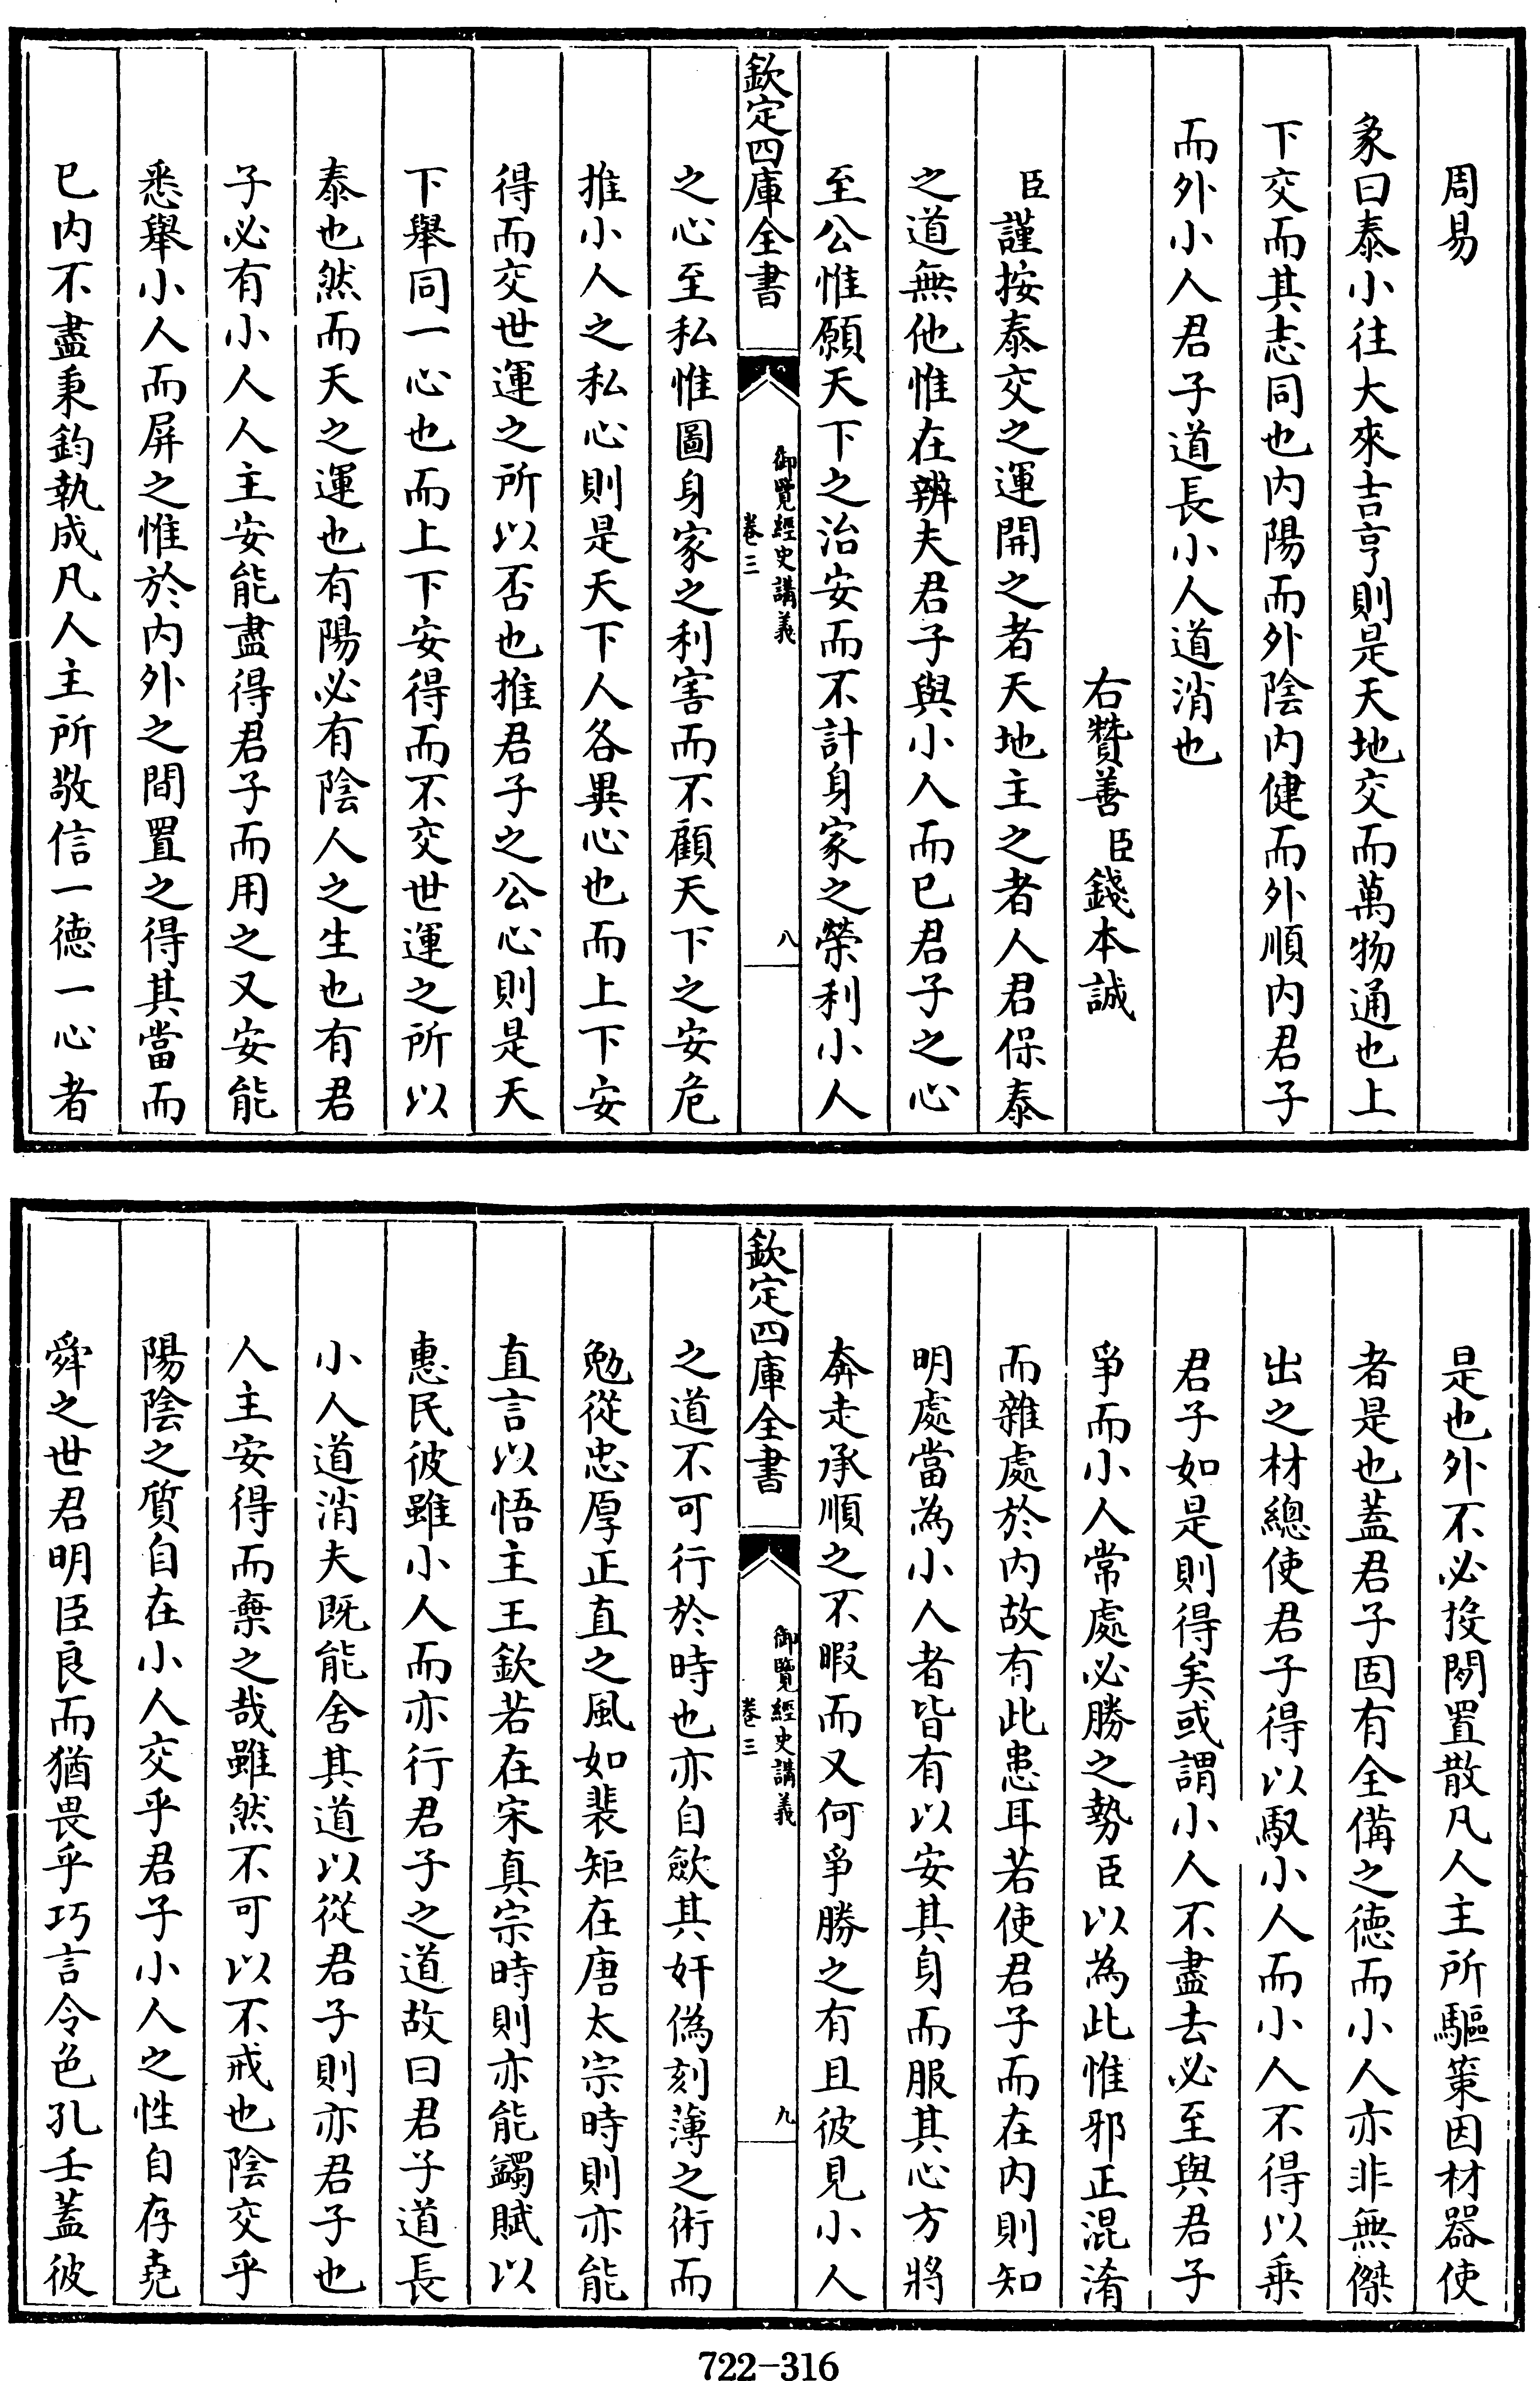 周易
彖曰泰小往大來吉亨則是天地交而萬物通也上
下交而其志同也内陽而外陰内健而外順内君子
而外小人君子道長小人道消也
右贊善臣錢本誠
臣謹按泰交之運開之者天地主之者人君保泰
之道無他惟在辨夫君子與小人而已君子之心
至公惟願天下之治安而不計身家之榮利小人
欽定四庫全書
御覽經史講義
卷三
八
之心至私惟圖身家之利害而不顧天下之安危
推小人之私心則是天下人各異心也而上下安
得而交世運之所以否也推君子之公心則是天
下舉同一心也而上下安得而不交世運之所以
泰也然而天之運也有陽必有陰人之生也有君
子必有小人人主安能盡得君子而用之又安能
悉舉小人而屏之惟於内外之間置之得其當而
已内不盡秉鈞執成凡人主所敬信一德一心者
是也外不必投閒置散凡人主所驅策因材器使
者是也蓋君子固有全備之德而小人亦非無傑
出之材總使君子得以馭小人而小人不得以乗
君子如是則得矣或謂小人不盡去必至與君子
爭而小人常處必勝之勢臣以為此惟邪正混淆
而雜處於内故有此患耳若使君子而在内則知
明處當為小人者皆有以安其身而服其心方將
奔走承順之不暇而又何爭勝之有且彼見小人
欽定四庫全書
御覽經史講義
卷三
九
之道不可行於時也亦自歛其奸偽刻薄之術而
勉從忠厚正直之風如裴矩在唐太宗時則亦能
直言以悟主王欽若在宋真宗時則亦能蠲賦以
惠民彼雖小人而亦行君子之道故曰君子道長
小人道消夫既能舍其道以從君子則亦君子也
人主安得而棄之哉雖然不可以不戒也陰交乎
陽陰之質自在小人交乎君子小人之性自存堯
舜之世君明臣良而猶畏乎巧言令色孔壬蓋彼
722-316